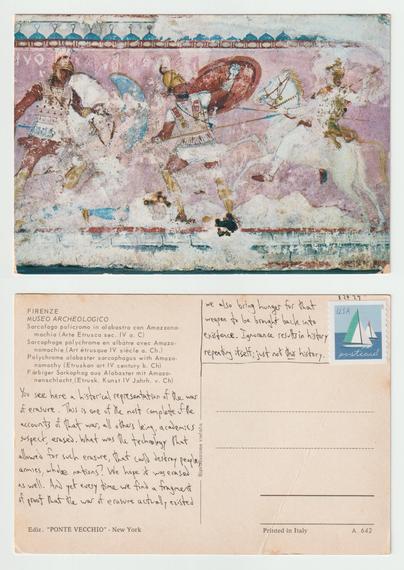 FIRENZE
MUSEO ARCHEOLOGICO
Sarcofago policromo in alabastro con Amazzono-
machia (Arte Etrusca sec. IV a. C)
Sarcophage polychrome en albâtre avec Amazo-
nomachie (Art étrusque IV siècle a. Ch.)
Polychrome alabaster sarcophagus with Amazo-
nomachy (Etruskan art IV century b. Ch)
Färbiger Sarkophag aus Alabaster mit Amazo-
nenschlacht (Etrusk. Kunst IV Jahrh. v. Ch)
You see here a historical representation of the war
of erasure. This is one of the most complete of the
accounts of that war, all others being, academics
suspect, erased. What was the technology that
allowed for such erasure, that could destroy people,
armies, whole nations? We hope it was erased
as well. And yet every time we find a fragment
of proof that the war of erasure actually existed
we also bring hunger for that
weapon to be brought back into
existence. Ignorance results in history
repeating itself; just not this history.
USA
postcard
Riproduzione vietata
Ediz. "PONTE VECCHIO" - New York
Printed in Italy
A. 642